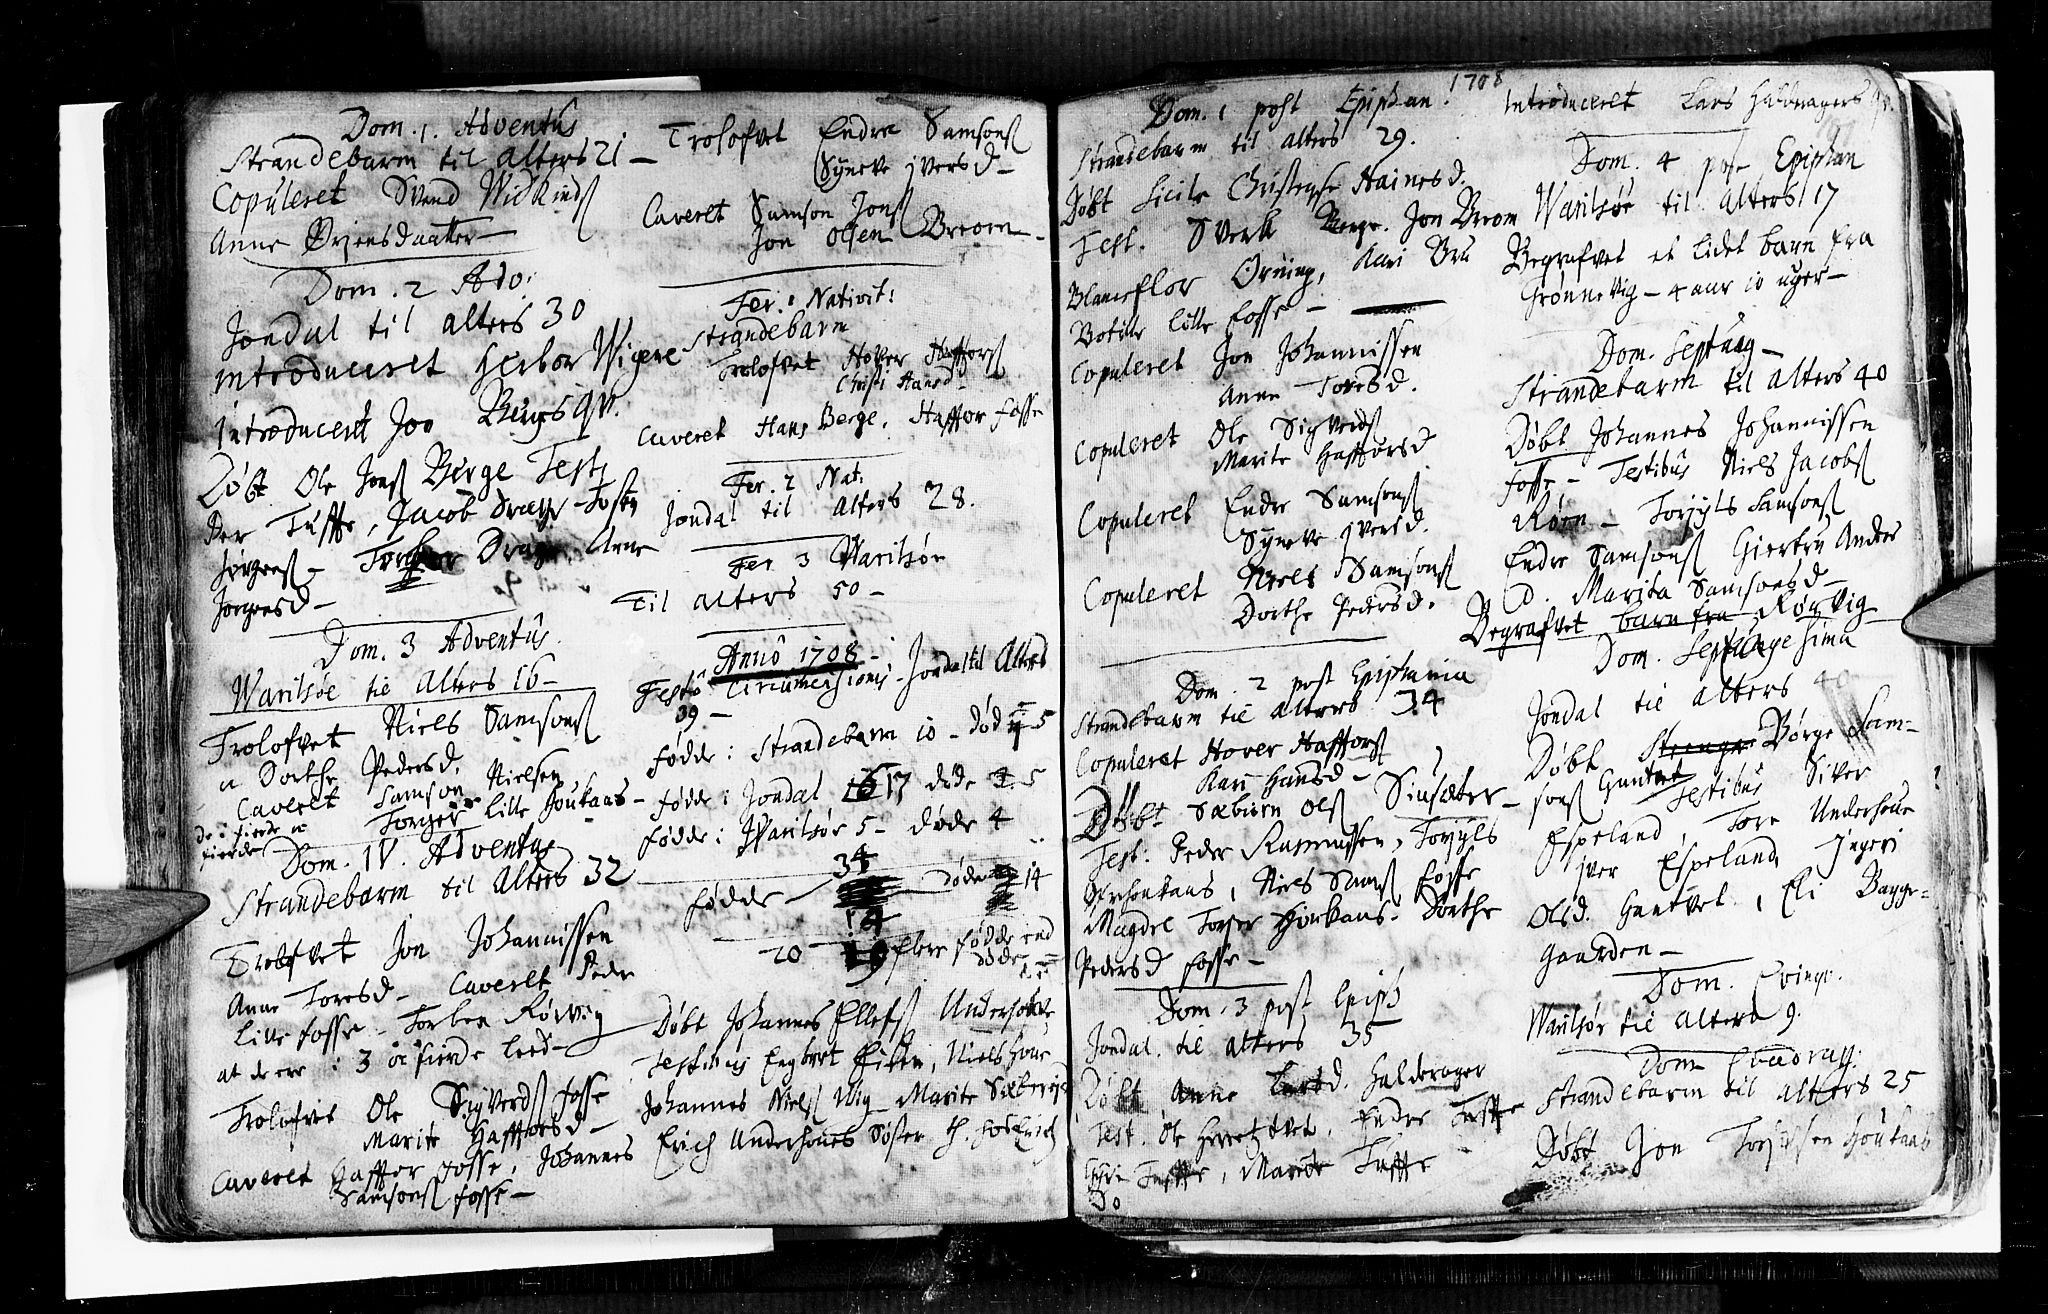 Dom. 1. Adventûs
Strandebarm til Alters 21 –
Copuleret Svend Widkinds
Anne Ørjensdaatter –
Dom. 2 Adv:
Jondal til alters 30
introduceret Herbor Wigene
introduceret Jon Bergs qv.
Døbt Ole Jons Berge Test,
Per Tuffte, Jacob
Jørgens –
Jorgensd –
Dom. 3 Adventûs.
Warilsøe til Alters 16 –
Trolofvet Niels Samsons
Dorthe Pedersd.
Caveret Samson Nielsen
Torger Lille Houkaas –
Dom. IV. Adventus
Strandebarm til Alters 32
Trolofvet Jon Johannissen
Anne Toresd – Caveret Peder
Lille fosse – Torben Rørvig
at de ere i 3 oc fierde leed –
Trolofvet Ole Sigverds fosse
Marite Haffforsd –
Caveret Haffor fosse, Johannes
Samsons fosse –
Trolofvet Endre Samsons
Syneve jversd –
Caveret Samson Jons
Jon Olsen Breom –
Fer. 1 Nativit:
Strandebarm
Trolofvet Hover Haffors
Hansd –
Caveret Hans Berge, Haffor fosse
Fer. 2 Nat:
Jondal til Alters 28.
Fer 3 Warilsøe
Til alters 50 –
Anno 1708 –
Festo Circumcisionis – Jondal til Alters
39 –
fødde i Strandebarm 10 – død 5
fødde i Jondal 17 døde 5
fødde i Warilsøe 5 – døde 4
34
fødde – døde 14
14
20 flere fødde end
døde
Døbt Johannes Ellefs Underhoue
Testibus Engbret Eiken, Niels houe
Johannes Niels Wig – Marite
Erich Underhoues Søster
1708
Dom. 1 post Epiphan.
Strandebarm til alters 29.
Døbt Sicile Christense Hainesd.
Test. Sverk Berge. Jon Breom
Blanseflor Ørning, Kari Bru
Botilde lille fosse –
Copuleret Jon Johannissen
Anne Toresd.
Copuleret Ole Sigverds
Marite Hafforsd
Copuleret Endre Samsons
Syneve jversd.
Copuleret Niels Samsons
Dorthe Pedersd.
Dom. 2 post Epiphania
Strandebarm til alters 34
Copuleret Hover Haffors
Kari Hansd –
Døbt Sæbiørn Ols
Test. Peder Rasmussen, Torjyls
Niels Sams fosse
Magdel Torger Houkaas. Dorthe
Pedersd fosse –
Dom. 3 post Epiph
Jondal til alters 35
Døbt Anne Larsd. Halderager
Test. Ole Herretzvet, Endre Tuffte
Tuffte, Marite Tuffte
Do
introduceret Lars Halderagers qv.
Dom. 4 post Epiphan
Warilsøe til alters 17
Begrafvet et lidet barn fra
Grønnevig – 4 aar 10 uger –
Dom. Septuag –
Strandebarm til alters 40
Døbt Johannes Johannissen
fosse – Testibus Niels Jacobs
Røen – Torjyls Samsons
Endre Samsons Giertru Anders
D. Marita Samsonsd –
Begrafvet barn fra Rørvig
Dom. Septuagesima
Jondal til alters 40
Døbt Børge Sam-
sons Huntvet Testibus Siver
Espeland, Tore Underhoue
jver Espeland, Jngeri
Olsd. Huntvet, Eli Bagge-
gaarden –
Dom. Qvinqv.
Warilsøe til Alters 9.
Dom Qvadrag:
Strandebarm til alters 25
Døbt Jon Houkaas